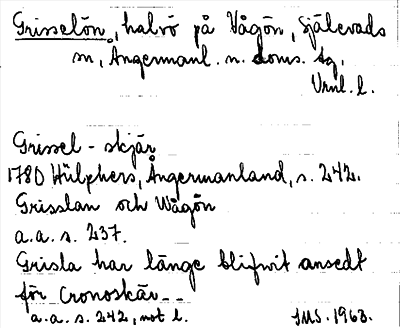 Grisselön, halvö på Vågön, Själevads
sn, Ångermanl. n. doms. tg.
Vrnl. l.
Grissel-skjär
1780 Hülphers, Ångermanland, s. 242.
Grisslan och Wågön
a.a. s. 237.
Grisla har länge blifwit ansedt
för Cronoskär--
a.a. s. 242, not l.
JMS. 1963.